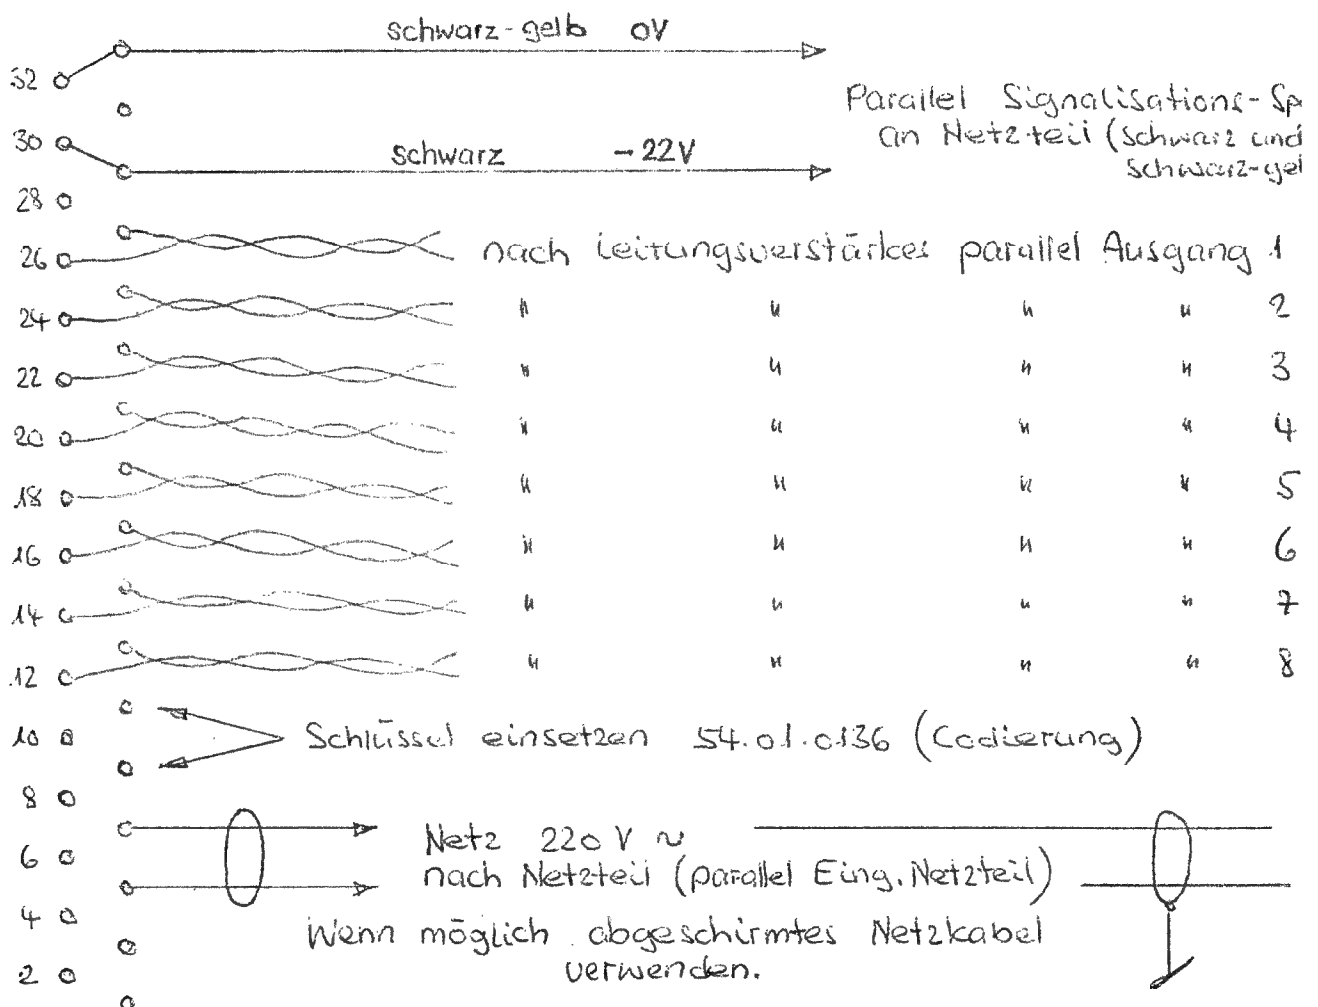 schwarz-gelb 0V
32
Parallel Signalisations-Sp
30
an Netzteil (schwarz und
schwarz -22V
schwarz-gel
28
26 nach Leitungsverstärker parallel Ausgang 1
24 " " " " 2
22 " " " " 3
20 " " " " 4
18 " " " " 5
16 " " " " 6
14 " " " " 7
12 " " " " 8
10 Schlüssel einsetzen 54.01.0136 (Codierung)
8
Netz 220 V ~
6
nach Netzteil (parallel Eing. Netzteil)
4
Wenn möglich abgeschirmtes Netzkabel
verwenden.
2